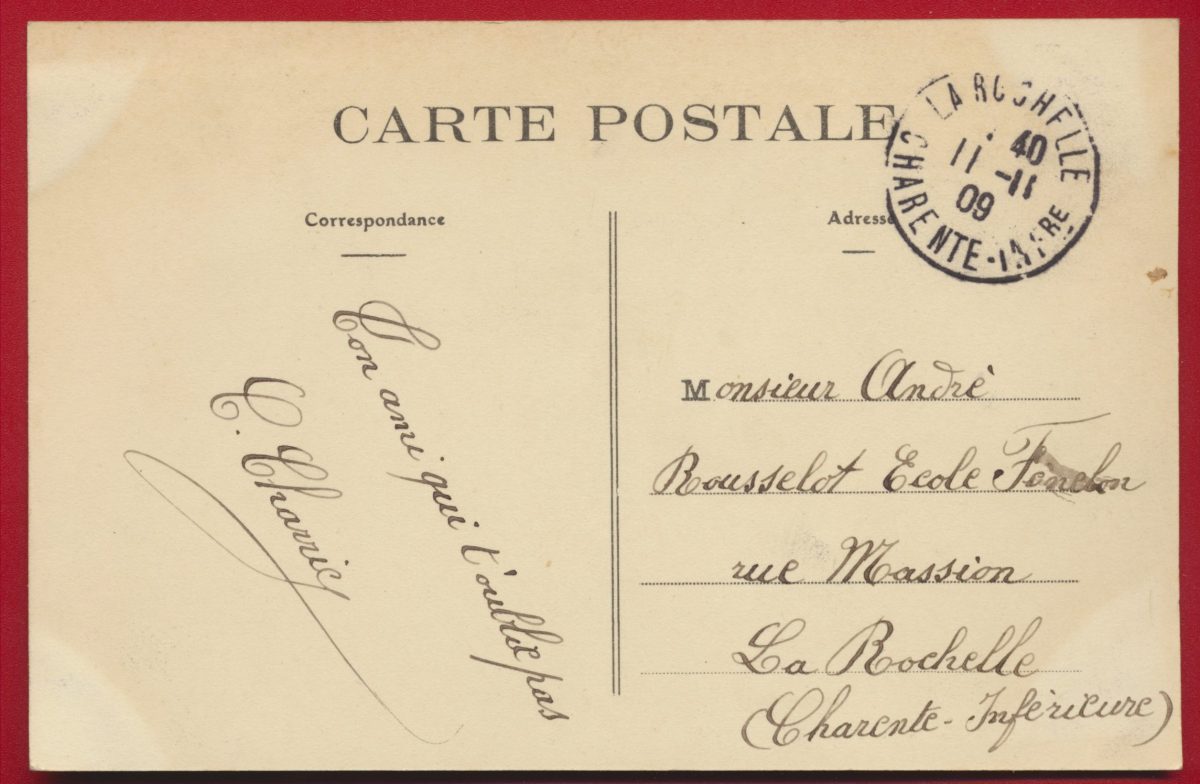 CARTE POSTALE
LA ROCHELLE
11 40
11 -11
09
CHARENTE-INFRE
Correspondance
Adresse
Ton ami qui t'oublie pas
C. Charrier
Monsieur André
Rousselot Ecole Fénelon
rue Massion
La Rochelle
(Charente-Inférieure)